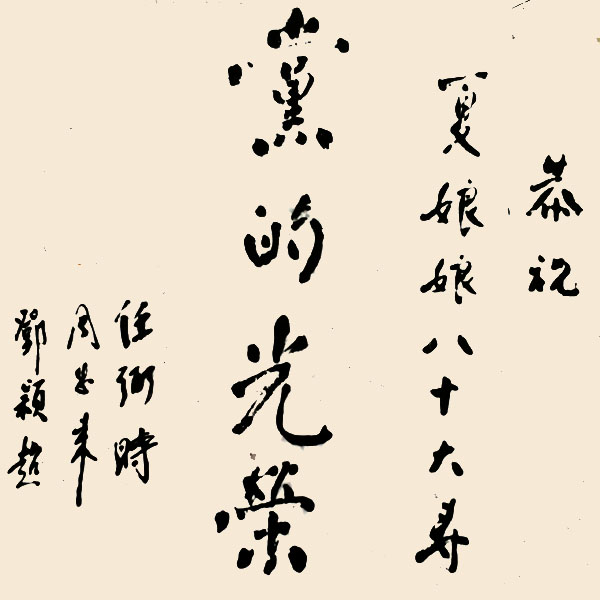 恭祝
夏娘娘八十大寿
黨的光榮
任弼時
周恩来
鄧颖超